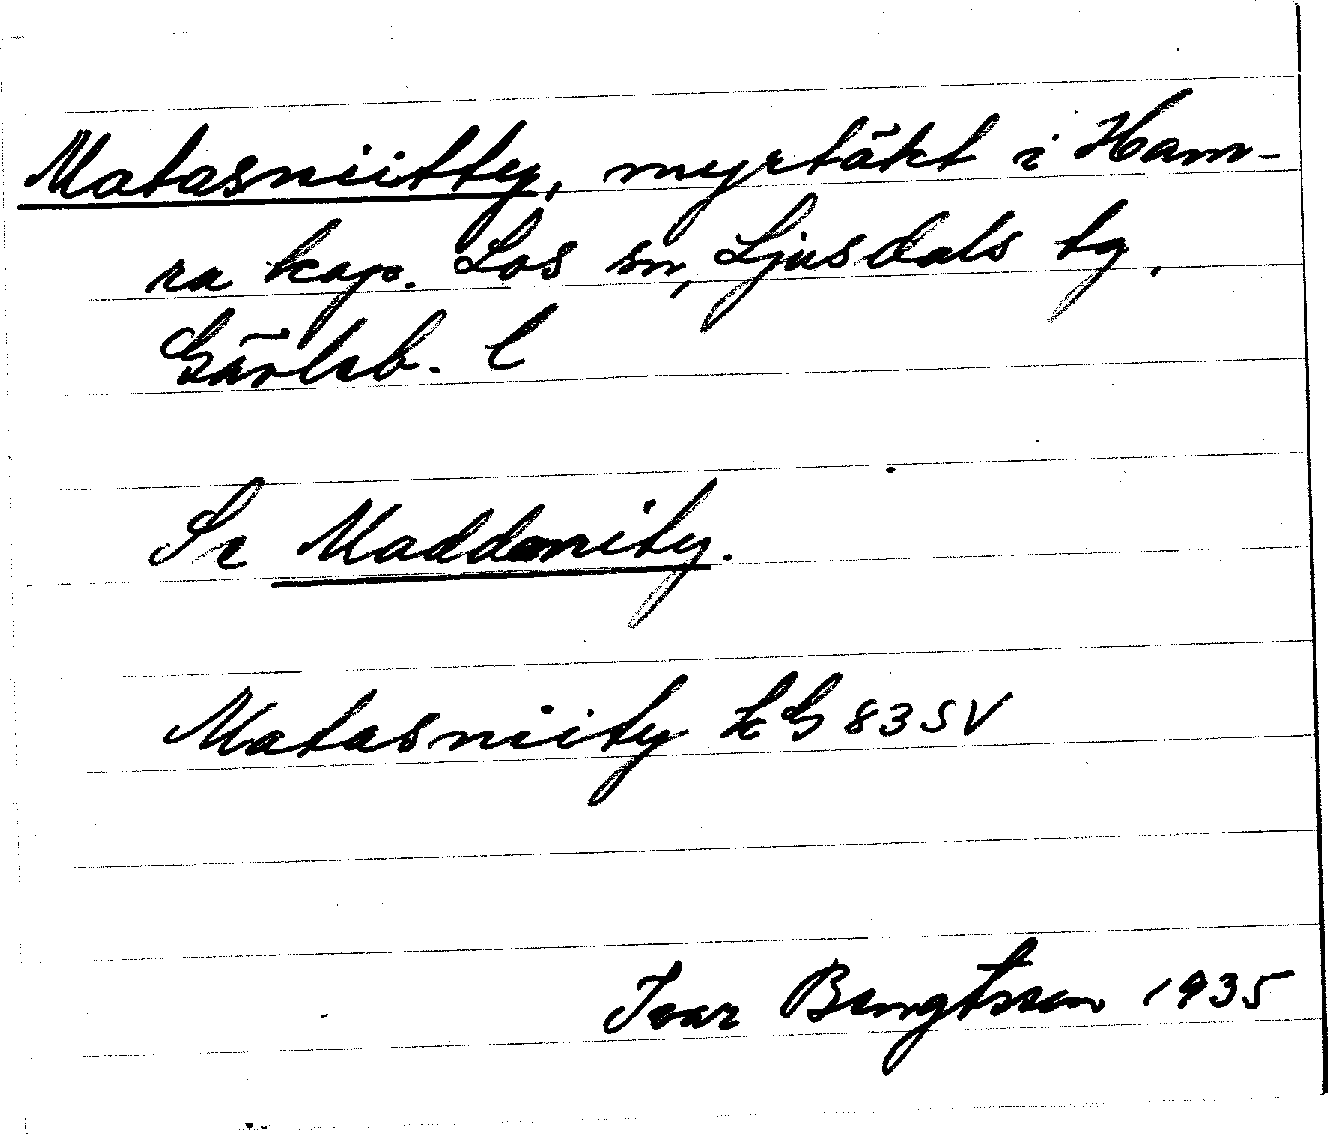 Matasniitty, myrtäkt i Ham-
ra kap. Los sn, Ljusdals tg,
Gävleb. l
Se Maddonity.
Matasniity kG 83 SV
Ivar Bengtsson 1935